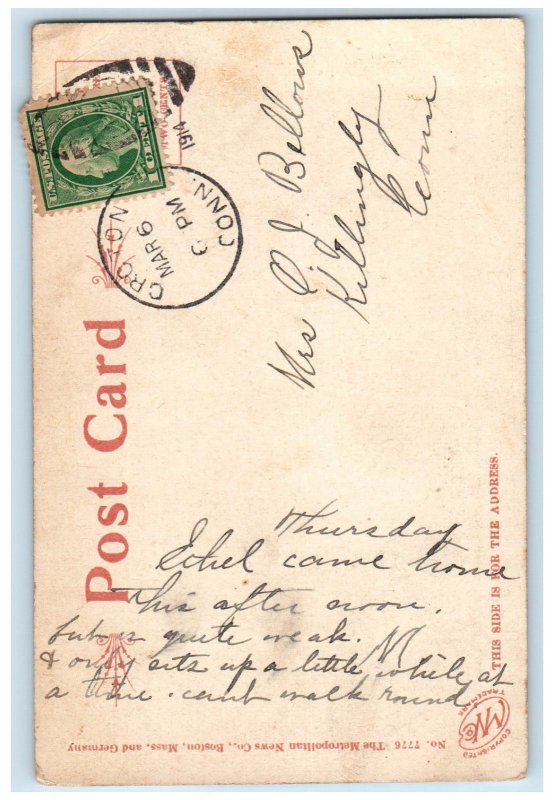 U.S. POSTAGE
1 CENT 1
TWO CENTS
GROTON
MAR 6
6 PM
1914
CONN.
Post Card
Mrs C. J. Bellows
Killingly
Conn
THIS SIDE IS FOR THE ADDRESS.
Thursday
Ethel came home
this after noon.
but is quite weak.
& only sits up a little while at
a time. cant walk round
COPYRIGHTED
TRADEMARK
No. 7776 The Metropolitan News Co., Boston, Mass, and Germany